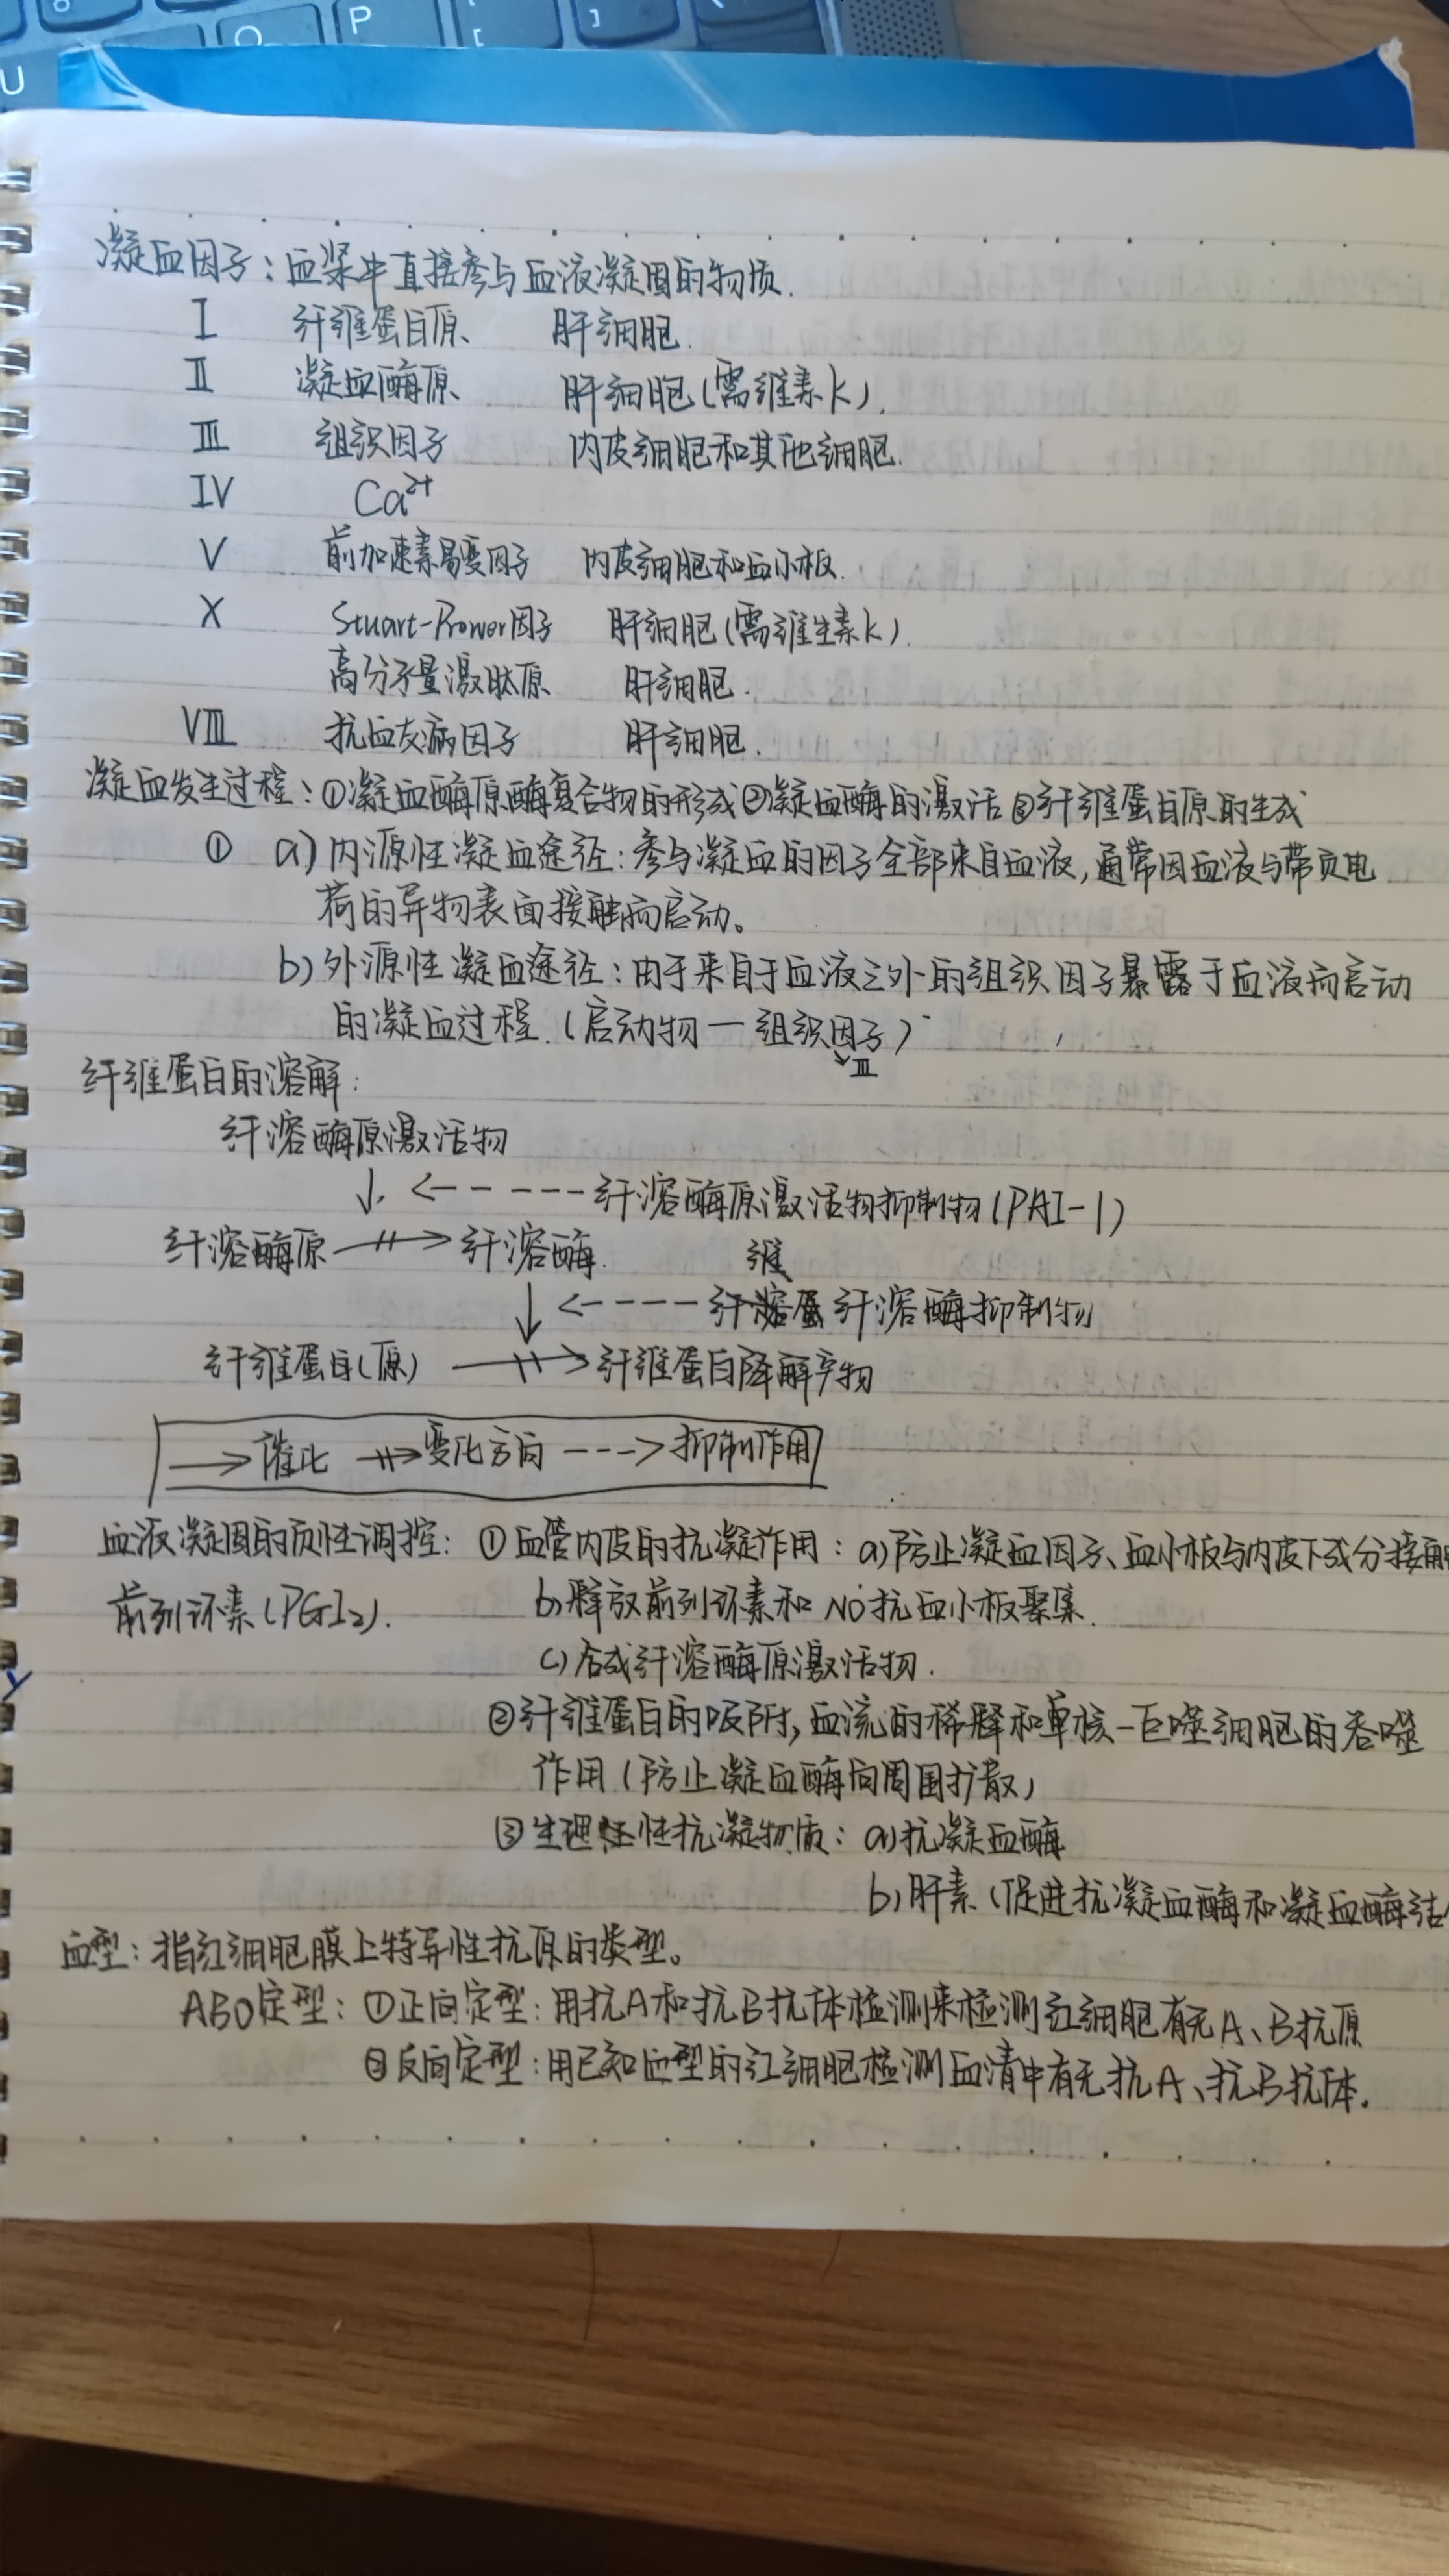 U O P [ ]
凝血因子：血浆中直接参与血液凝固的物质.
I 纤维蛋白原、 肝细胞.
II 凝血酶原、 肝细胞(需维素K).
III 组织因子 内皮细胞和其他细胞.
IV Ca²⁺
V 前加速素易变因子 内皮细胞和血小板.
X Stuart-Prower因子 肝细胞(需维生素K).
高分子量激肽原 肝细胞.
VIII 抗血友病因子 肝细胞.
凝血发生过程：①凝血酶原酶复合物的形成②凝血酶的激活③纤维蛋白原的生成
① a)内源性凝血途径：参与凝血的因子全部来自血液,通常因血液与带负电
荷的异物表面接触而启动。
b)外源性凝血途径：由于来自于血液之外的组织因子暴露于血液而启动
的凝血过程.(启动物一组织因子)
↘III
纤维蛋白的溶解：
纤溶酶原激活物
↓. <-----纤溶酶原激活物抑制物(PAI-1)
纤溶酶原 ⇸ 纤溶酶. 维
↓ <----纤 纤溶酶抑制物
纤维蛋白(原) ⇸ 纤维蛋白降解产物
→催化 ⇸变化方向 --->抑制作用
血液凝固的负性调控：①血管内皮的抗凝作用：a)防止凝血因子、血小板与内皮下成分接触
前列环素(PGI₂). b)释放前列环素和NO抗血小板聚集.
c)合成纤溶酶原激活物.
②纤维蛋白的吸附,血流的稀释和单核一巨噬细胞的吞噬
作用(防止凝血酶向周围扩散)
③生理性抗凝物质：a)抗凝血酶
b)肝素(促进抗凝血酶和凝血酶结
血型：指红细胞膜上特异性抗原的类型。
ABO定型：①正向定型：用抗A和抗B抗体检测来检测红细胞有无A、B抗原
②反向定型：用已知血型的红细胞检测血清中有无抗A、抗B抗体.